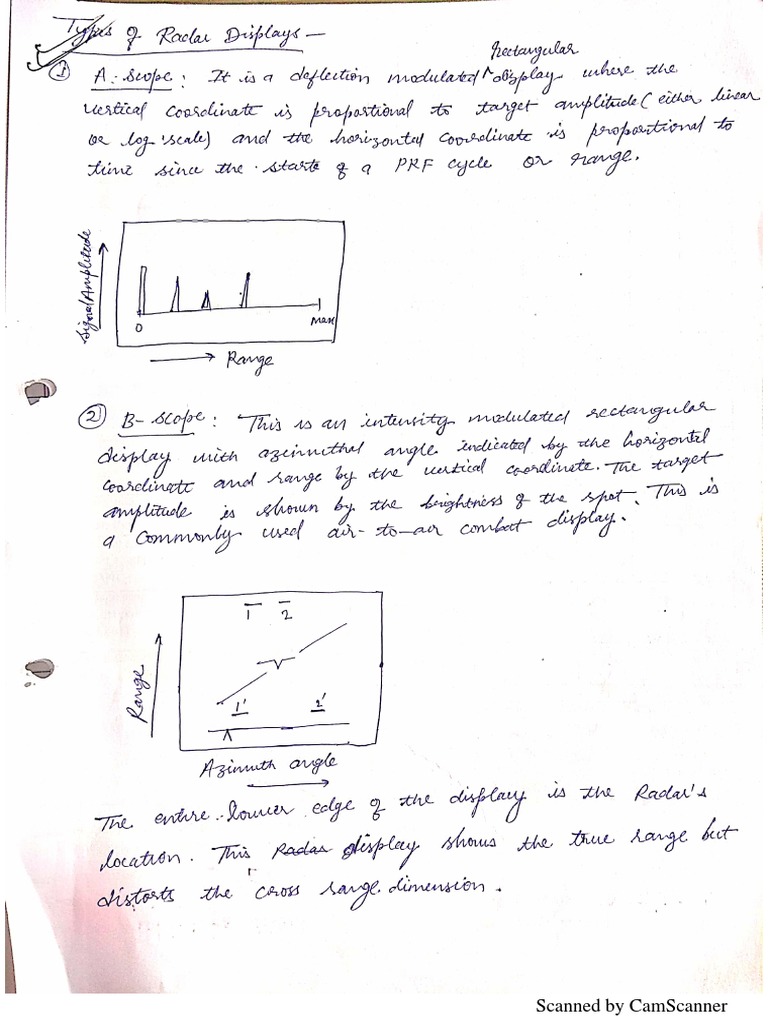 Types of Radar Displays -
Rectangular
① A-scope: It is a deflection modulated ^ display where the
vertical coordinate is proportional to target amplitude (either linear
or log scale) and the horizontal coordinate is proportional to
time since the starts of a PRF cycle or range.
Signal Amplitude
0
max
Range
② B-scope: This is an intensity modulated rectangular
display with azimuthal angle indicated by the horizontal
coordinate and range by the vertical coordinate. The target
amplitude is shown by the brightness of the spot. This is
a commonly used air-to-air combat display.
1 2
Range
1' 2'
Azimuth angle
The entire lower edge of the display is the Radar's
location. This Radar display shows the true range but
distorts the cross range dimension.
Scanned by CamScanner